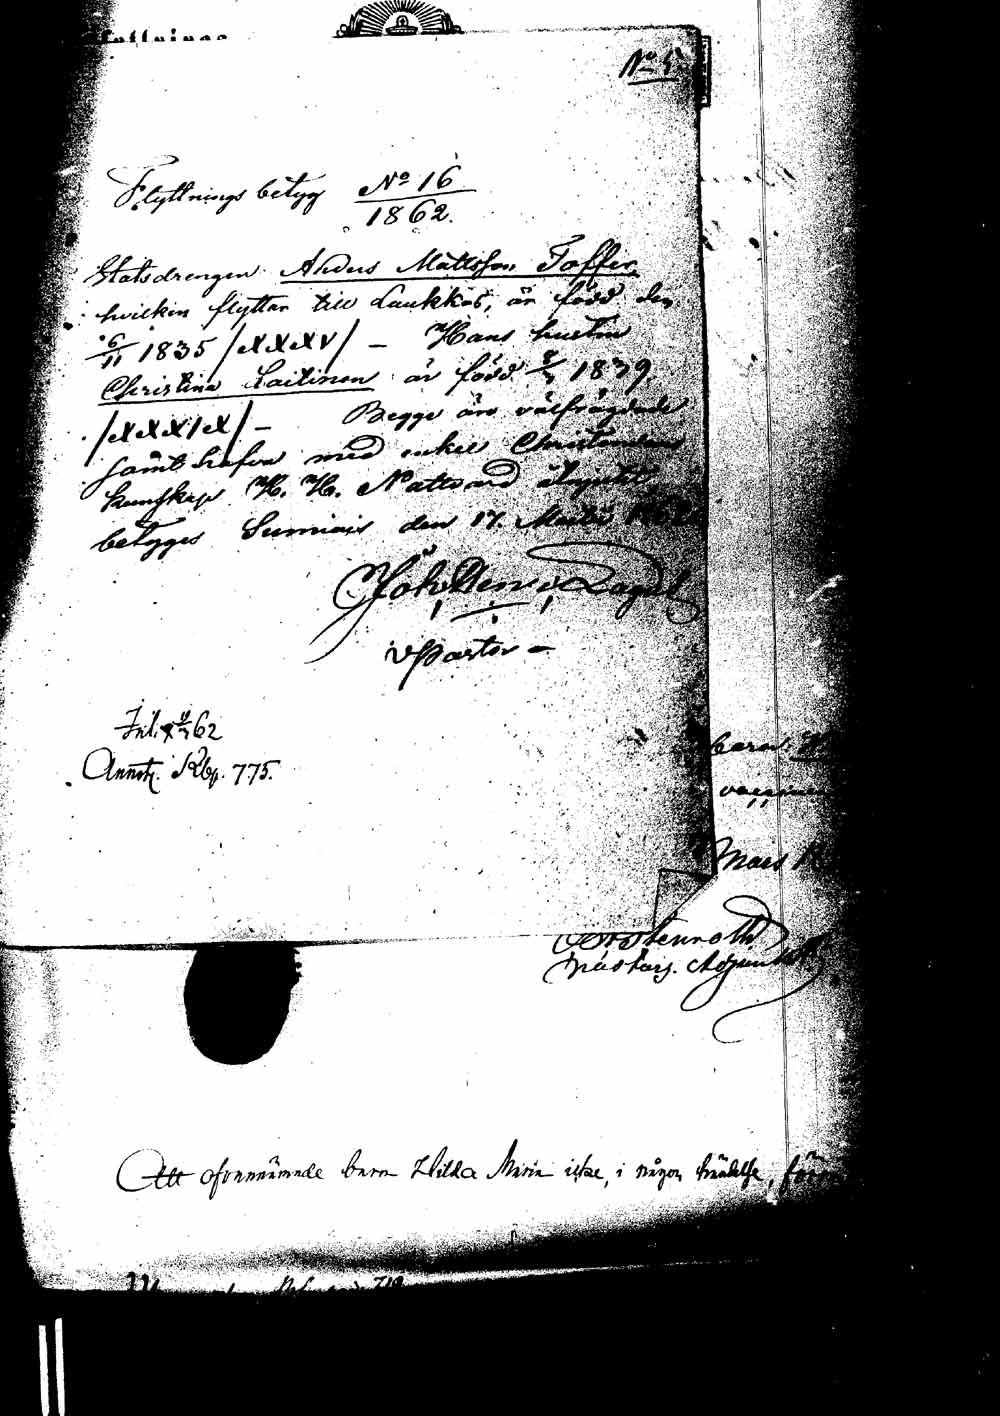 No 5
Flyttningsbetyg No 16
1862.
Statsdrengen Anders Mattsson Toffer
hvilken flyttar till Laukkas, är född den
6/11 1835 /XXXV/ – Hans hustru
Christina Laitinen är född 1839.
/XXXIX/ – Begge äro välfrägdade
samt hafva med enkel Christendoms
kunskap H. H. Nattvard åtnjutit,
betygges Sumiais den 17. Martii 1862
Joh Henr Lagus
v Pastor –
Inl. 62
Annot. Kbp. 775.
barn
Mars
Att ofvannämnde barn Hilda Maria icke, i någon händelse, för